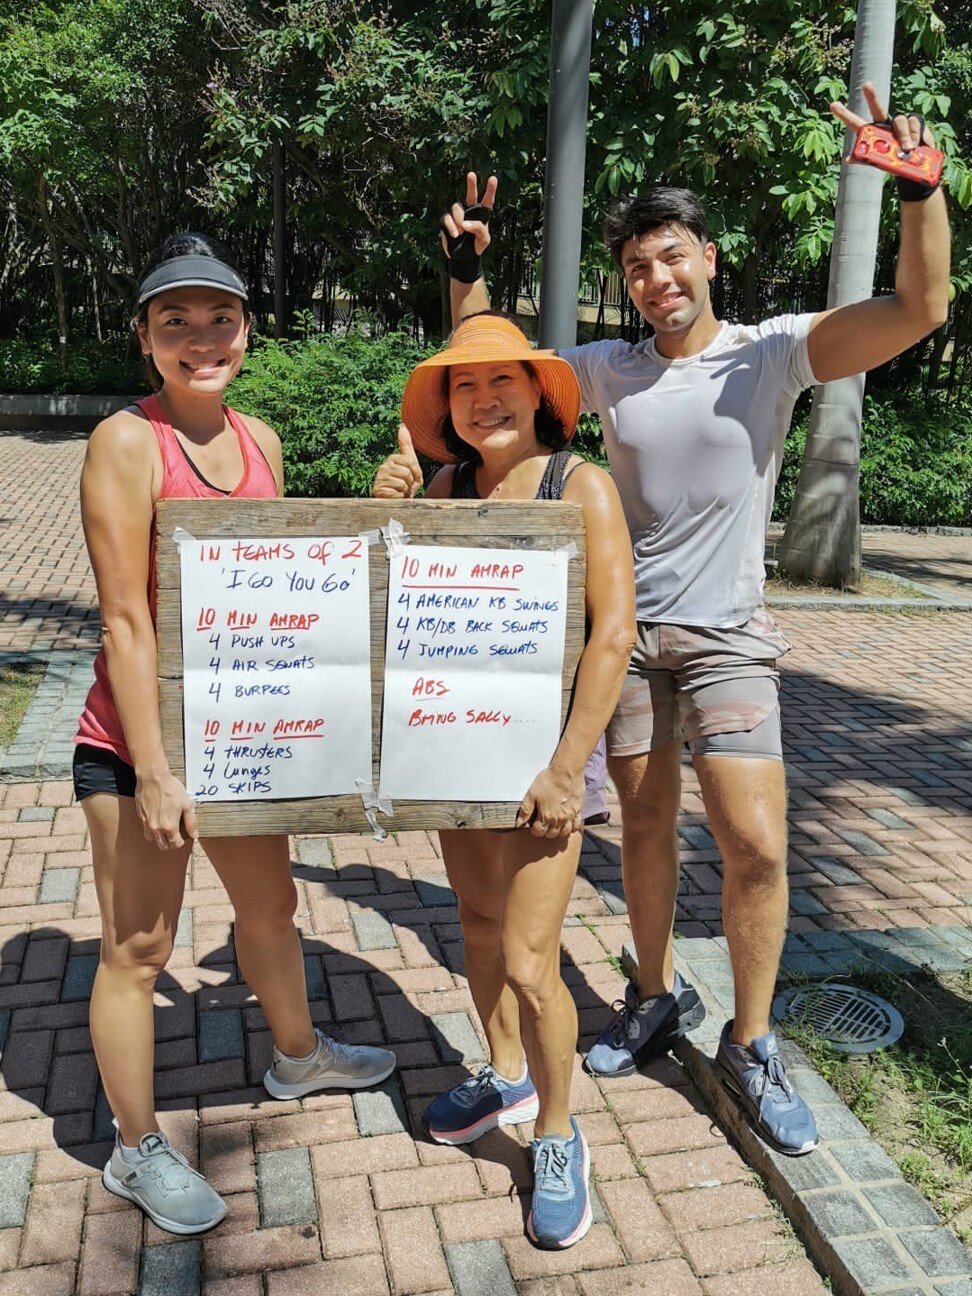 IN TEAMS OF 2
'I GO YOU GO'
10 MIN AMRAP
4 PUSH UPS
4 AIR SQUATS
4 BURPEES
10 MIN AMRAP
4 THRUSTERS
4 Lunges
20 SKIPS
10 MIN AMRAP
4 AMERICAN KB SWINGS
4 KB/DB BACK SQUATS
4 JUMPING SQUATS
ABS
BRING SALLY....